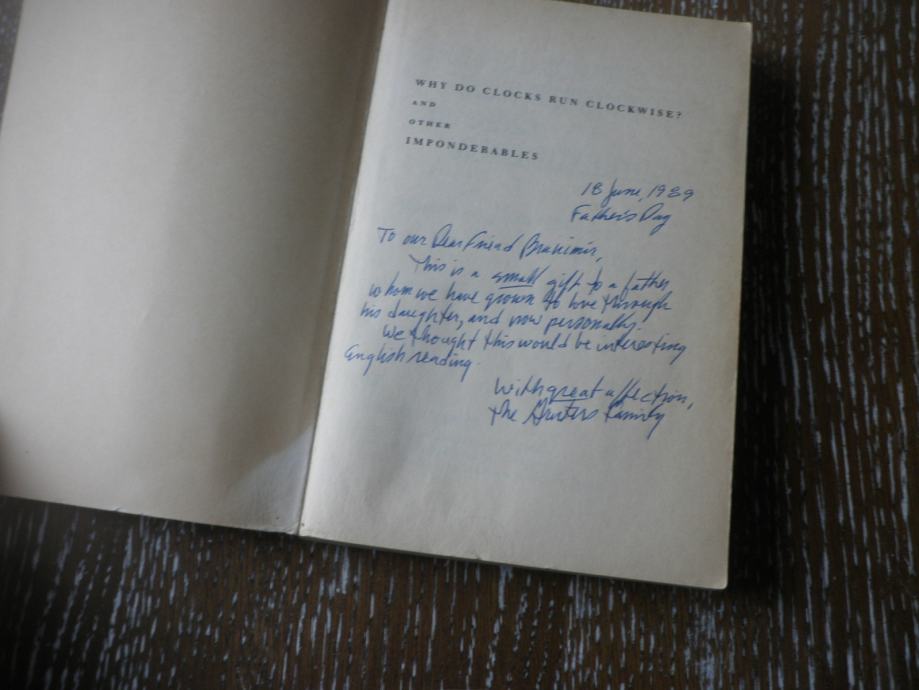 WHY DO CLOCKS RUN CLOCKWISE?
AND
OTHER
IMPONDERABLES
18 June, 1989
Father's Day
To our Dear Friend Branimir,
This is a small gift to a father
whom we have grown to love through
his daughter, and now personally.
We thought this would be interesting
English reading.
With great affection,
The Family